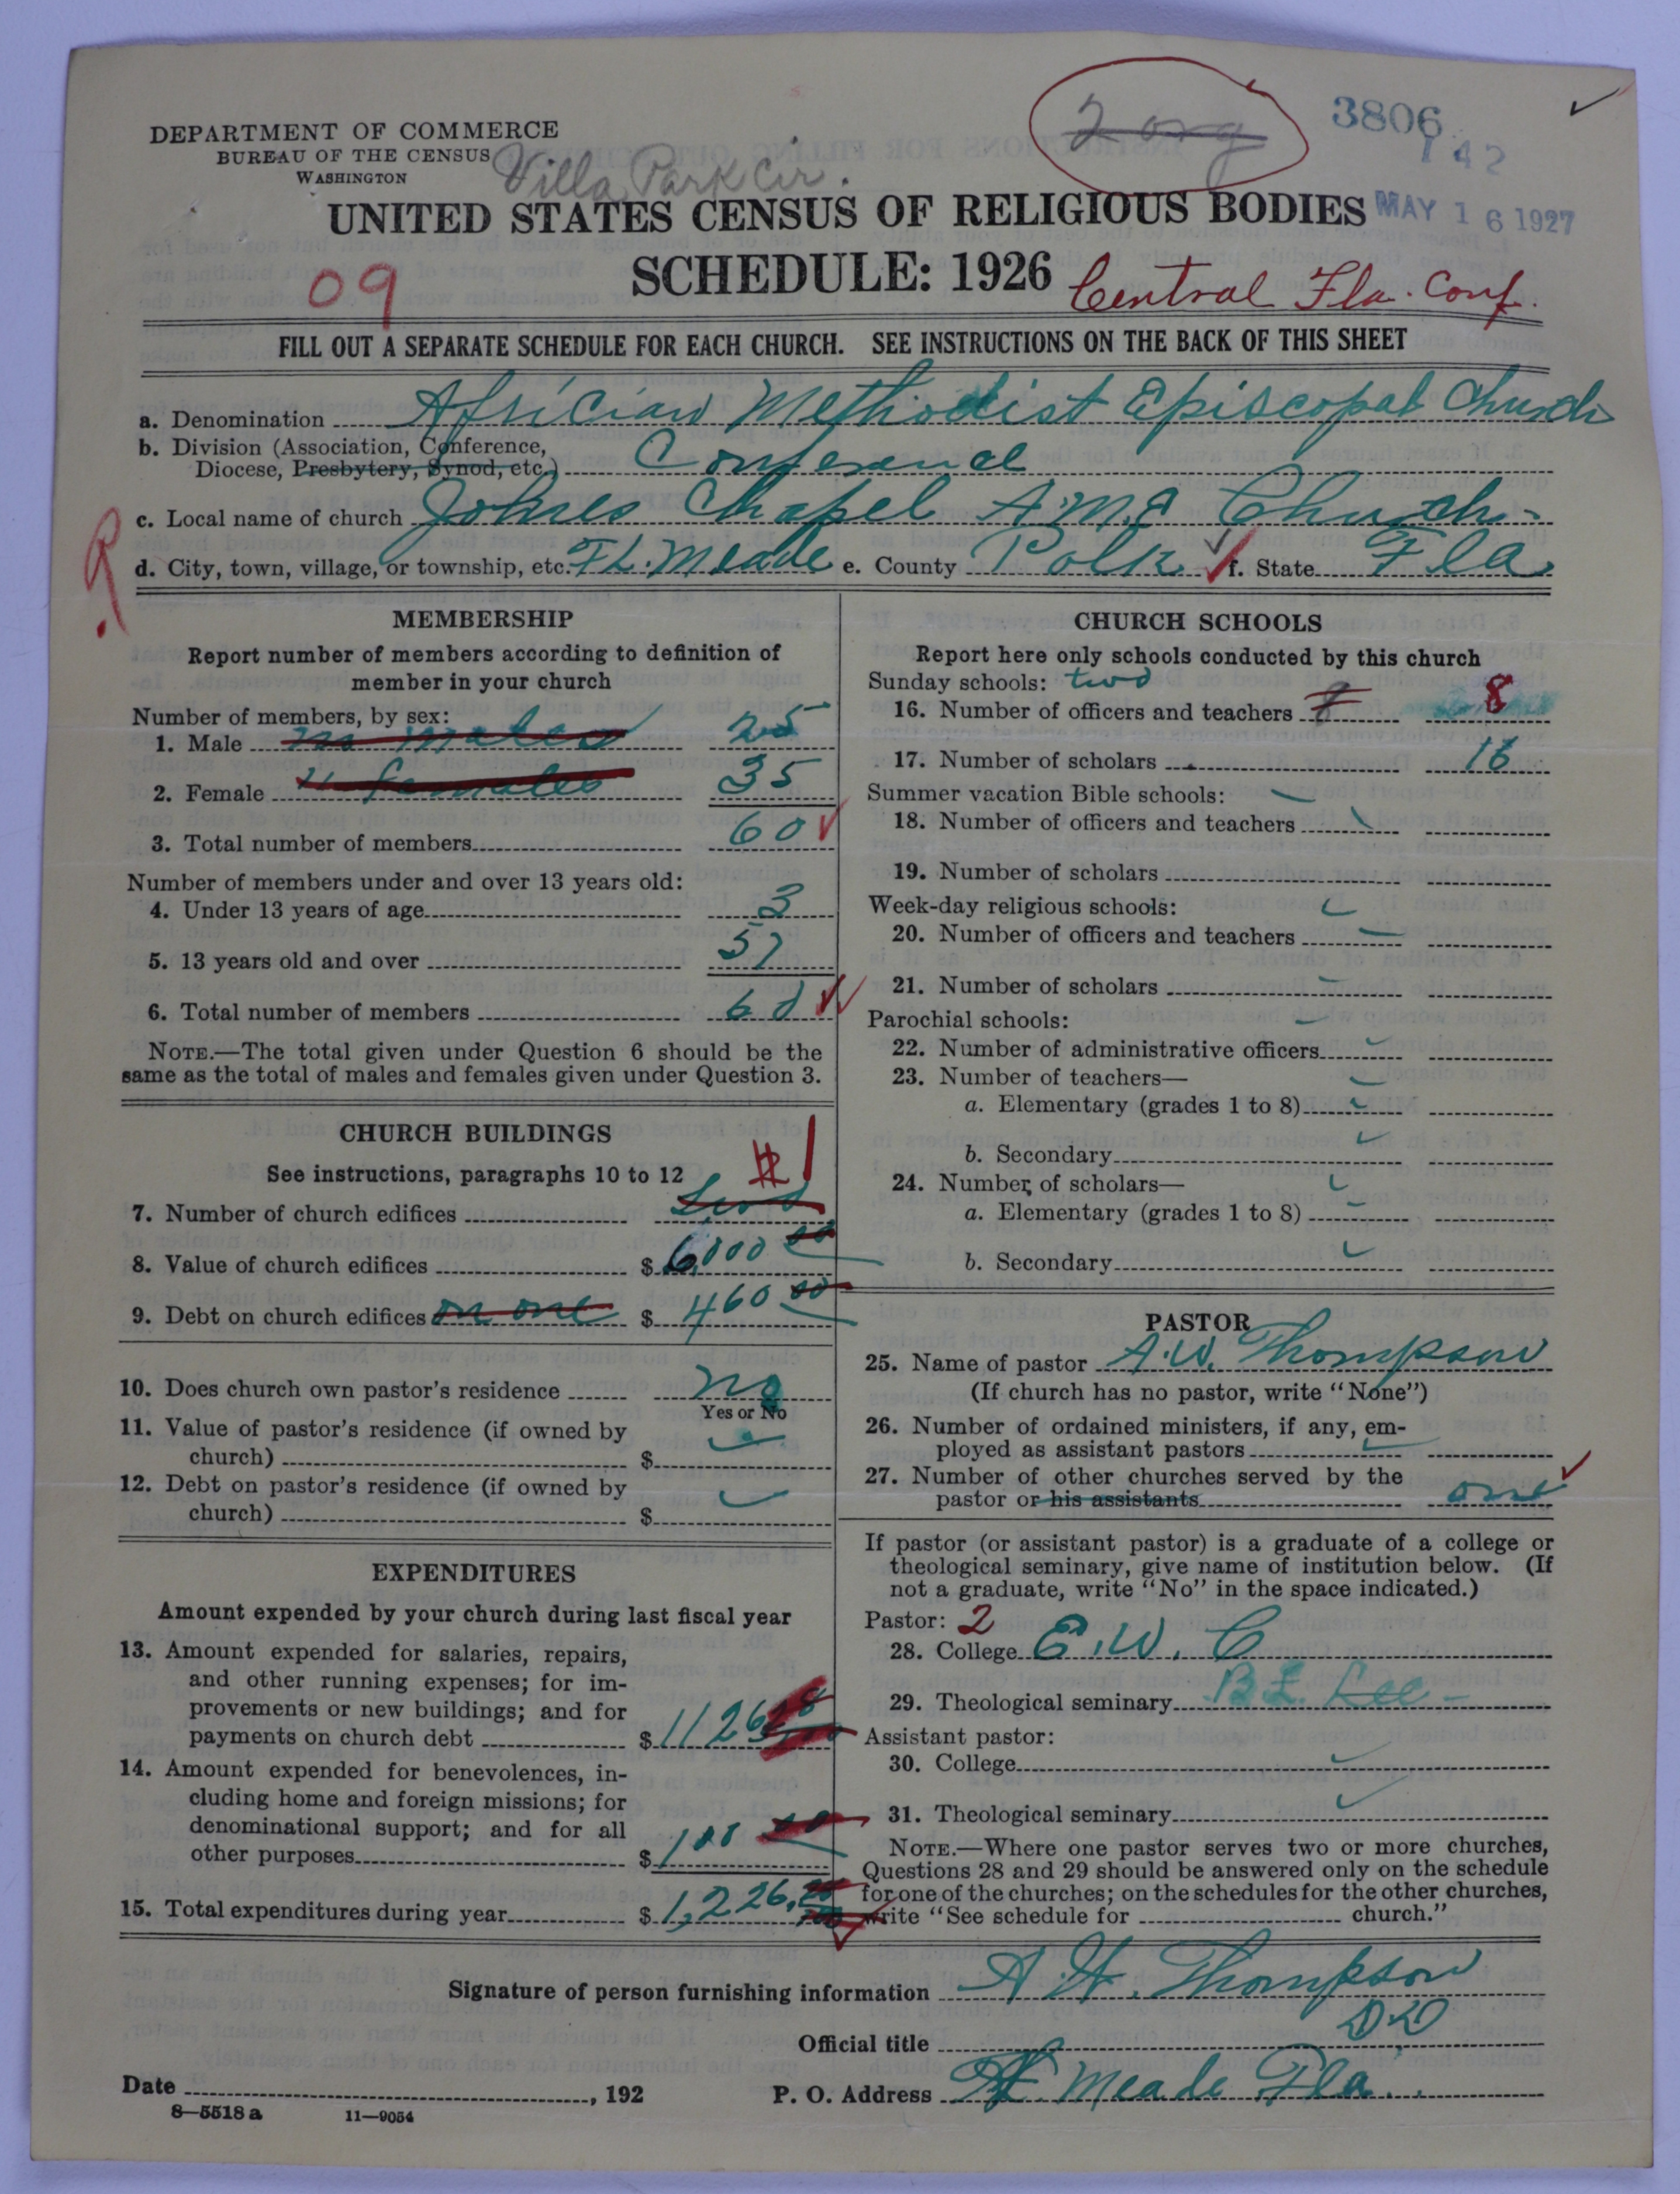 2 org
3806
142
DEPARTMENT OF COMMERCE
BUREAU OF THE CENSUS
WASHINGTON
Villa Park Cir.
UNITED STATES CENSUS OF RELIGIOUS BODIES
MAY 16 1927
SCHEDULE: 1926
09
Central Fla. Conf.
FILL OUT A SEPARATE SCHEDULE FOR EACH CHURCH. SEE INSTRUCTIONS ON THE BACK OF THIS SHEET
a. Denomination Africian Methodist Episcopal Church
b. Division (Association, Conference,
Diocese, Presbytery, Synod, etc.) Conference
c. Local name of church Johnes Chapel A.M.E Church
d. City, town, village, or township, etc. Ft. Meade e. County Polk f. State Fla
MEMBERSHIP
Report number of members according to definition of
member in your church
Number of members, by sex:
1. Male no males 25
2. Female " females 35
3. Total number of members 60
Number of members under and over 13 years old:
4. Under 13 years of age 3
5. 13 years old and over 57
6. Total number of members 60
NOTE.—The total given under Question 6 should be the
same as the total of males and females given under Question 3.
CHURCH BUILDINGS
See instructions, paragraphs 10 to 12
# 1
7. Number of church edifices two
8. Value of church edifices $ 6,000 00
9. Debt on church edifices on one $ 460 00
10. Does church own pastor's residence no
Yes or No
11. Value of pastor's residence (if owned by
church) $
12. Debt on pastor's residence (if owned by
church) $
EXPENDITURES
Amount expended by your church during last fiscal year
13. Amount expended for salaries, repairs,
and other running expenses; for im-
provements or new buildings; and for
payments on church debt $ 1126
14. Amount expended for benevolences, in-
cluding home and foreign missions; for
denominational support; and for all
other purposes $ 100 00
15. Total expenditures during year $ 1,226.
CHURCH SCHOOLS
Report here only schools conducted by this church
Sunday schools: two
16. Number of officers and teachers 8
17. Number of scholars 16
Summer vacation Bible schools:
18. Number of officers and teachers
19. Number of scholars
Week-day religious schools:
20. Number of officers and teachers
21. Number of scholars
Parochial schools:
22. Number of administrative officers
23. Number of teachers—
a. Elementary (grades 1 to 8)
b. Secondary
24. Number of scholars—
a. Elementary (grades 1 to 8)
b. Secondary
PASTOR
25. Name of pastor A.W. Thompson
(If church has no pastor, write "None")
26. Number of ordained ministers, if any, em-
ployed as assistant pastors
27. Number of other churches served by the
pastor or his assistants one
If pastor (or assistant pastor) is a graduate of a college or
theological seminary, give name of institution below. (If
not a graduate, write "No" in the space indicated.)
Pastor: 2
28. College E.W.C
29. Theological seminary B.F. Lee
Assistant pastor:
30. College
31. Theological seminary
NOTE.—Where one pastor serves two or more churches,
Questions 28 and 29 should be answered only on the schedule
for one of the churches; on the schedules for the other churches,
write "See schedule for church."
Signature of person furnishing information A. W. Thompson
Official title DD
Date , 192
P. O. Address Ft. Meade Fla.
8—5518 a 11—9054